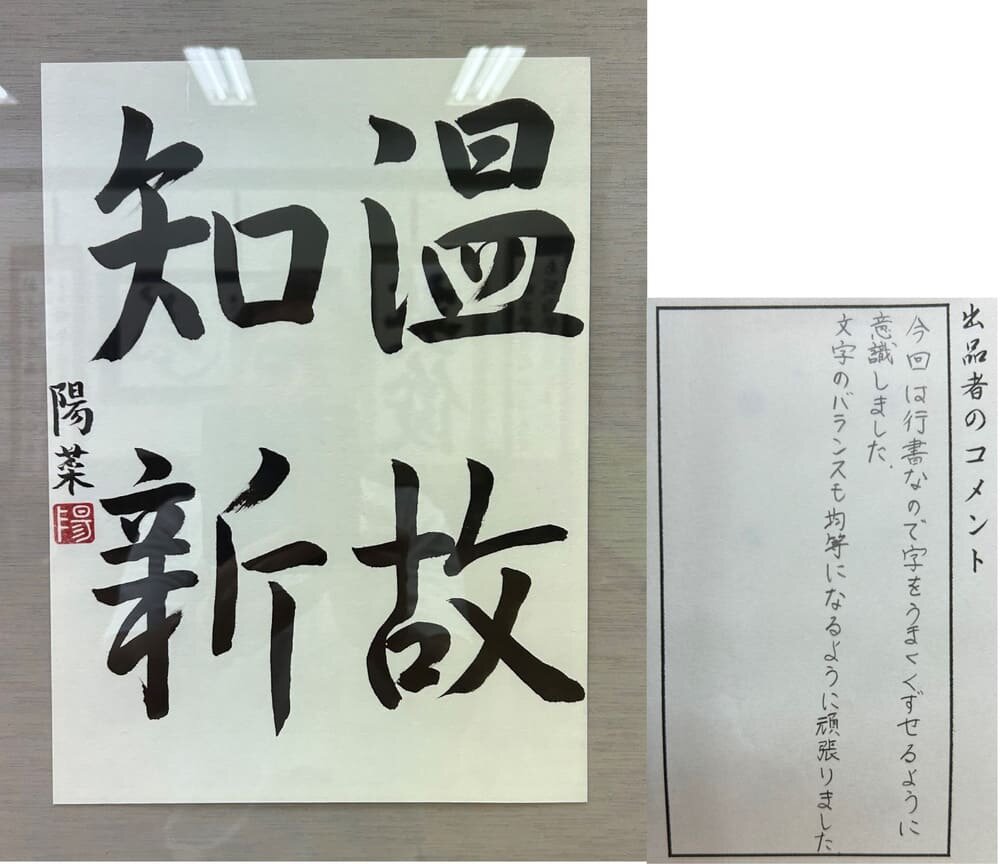 温故
知新
陽菜
陽
出品者のコメント
今回は行書なので字をうまくくずせるように
意識しました。
文字のバランスも均等になるように頑張りました